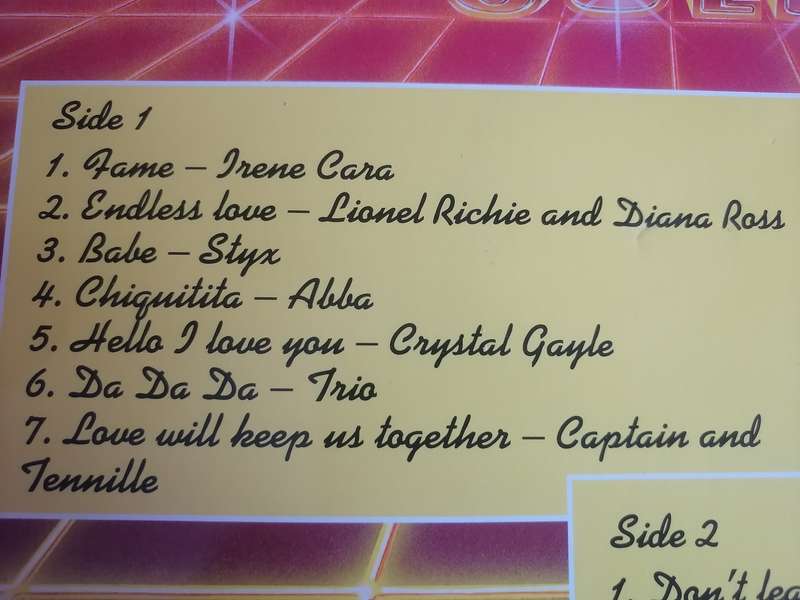 Side 1
1. Fame – Irene Cara
2. Endless love – Lionel Richie and Diana Ross
3. Babe – Styx
4. Chiquitita – Abba
5. Hello I love you – Crystal Gayle
6. Da Da Da – Trio
7. Love will keep us together – Captain and
Tennille
Side 2
1. Don't